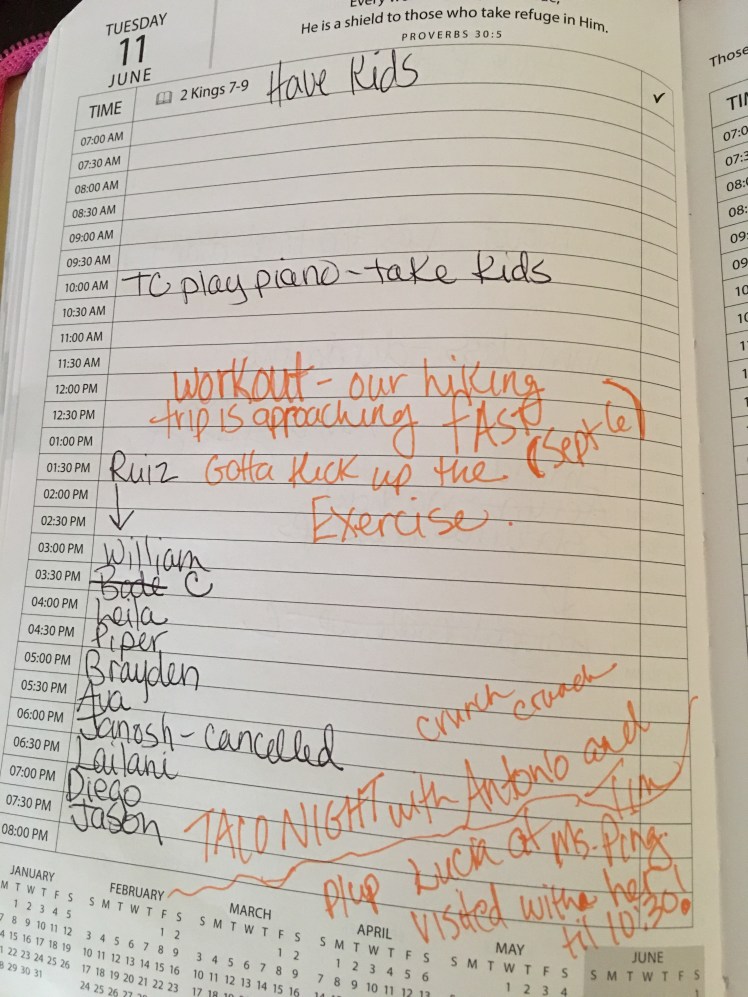 TUESDAY
11
JUNE
He is a shield to those who take refuge in Him.
PROVERBS 30:5
TIME 2 Kings 7-9 Have Kids ✓
07:00 AM
07:30 AM
08:00 AM
08:30 AM
09:00 AM
09:30 AM
10:00 AM TC play piano - take kids
10:30 AM
11:00 AM
11:30 AM
12:00 PM workout - our hiking
12:30 PM trip is aproaching fAST
01:00 PM (Sept 6)
01:30 PM Ruiz Gotta kick up the
02:00 PM
02:30 PM Exercise.
03:00 PM William
03:30 PM Bade C
04:00 PM Leila
04:30 PM Piper
05:00 PM Brayden
05:30 PM Ava
crunch crunch
06:00 PM Janosh - cancelled
06:30 PM Lailani
07:00 PM Diego
07:30 PM Jason
08:00 PM
TACO NIGHT with Antonio and
Tim
p/up Lucia at Ms. Ping.
visited with her
til 10:30!
JANUARY
M T W T F S
1 2 3 4 5
7 8 9 10 11 12
14 15 16 17 18 19
21 22 23 24 25 26
28 29 30 31
FEBRUARY
S M T W T F S
1 2
3 4 5 6 7 8 9
10 11 12 13 14 15 16
17 18 19 20 21 22 23
24 25 26 27
MARCH
S M T W T F S
1 2
3 4 5 6 7 8 9
10 11 12 13 14 15 16
APRIL
S M T W T F S
1 2 3 4 5 6
7 8 9 10 11 12 13
MAY
S M T W T F S
1 2 3 4
JUNE
S M T W T F S
1
Those